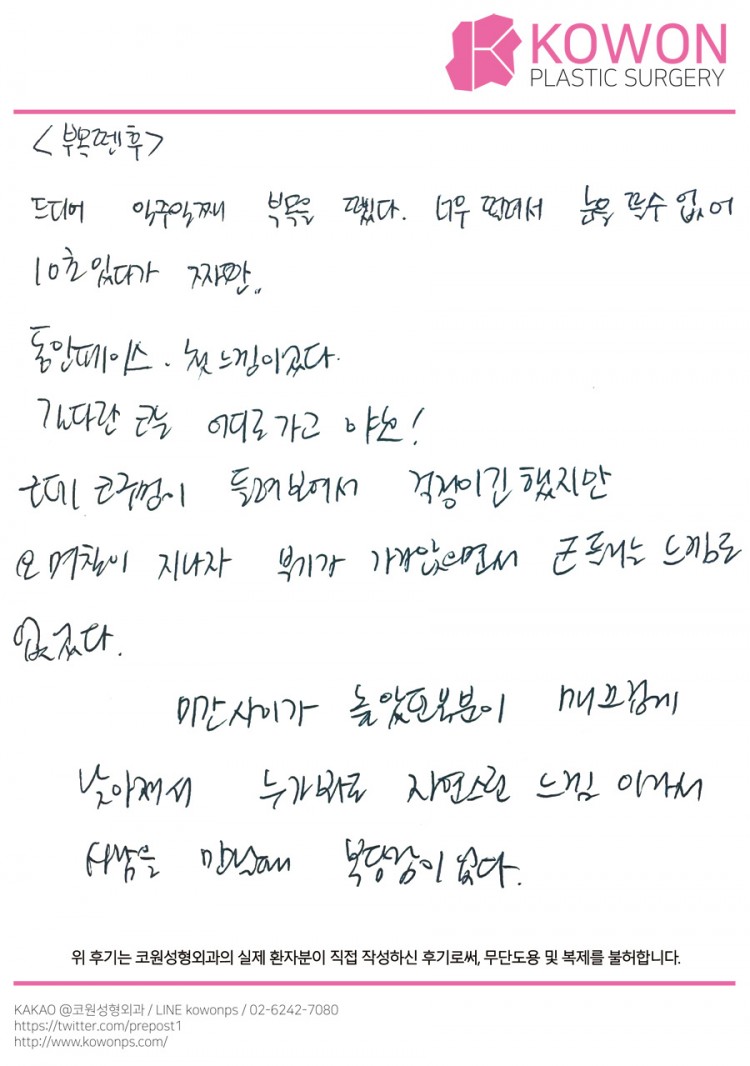 KOWON
PLASTIC SURGERY
<부목뗀후>
드디어 일주일째 부목을 뗐다. 너무 떨려서 눈을 뜰수 없어
10초있다가 짜짠..
동안페이스. 첫느낌이였다.
기다란 코는 어디로가고 야호!
근데 콧구멍이 들려보여서 걱정이긴 했지만
며칠이 지나자 붓기가 가라앉으면서 들리는 느낌도
없어졌다.
미간사이가 높았던부분이 매끄럽게
낮아져서 누가봐도 자연스런 느낌 이라서
사람을 만날때 부담감이 없다.
위 후기는 코원성형외과의 실제 환자분이 직접 작성하신 후기로써, 무단도용 및 복제를 불허합니다.
KAKAO @코원성형외과 / LINE kowonps / 02-6242-7080
https://twitter.com/prepost1
http://www.kowonps.com/